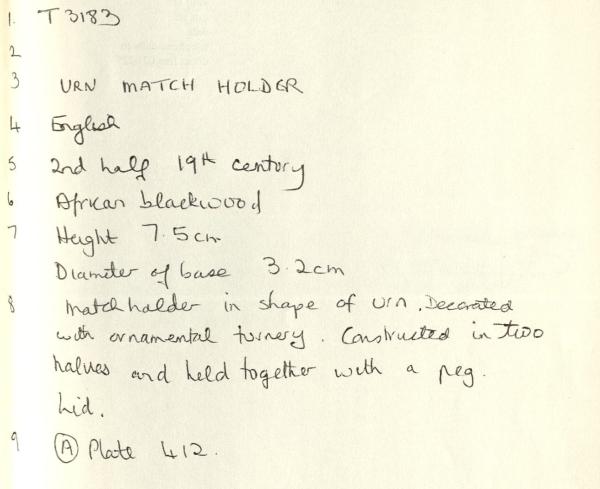 1. T 3183
2
3 URN MATCH HOLDER
4 English
5 2nd half 19th century
6 African blackwood
7 Height 7.5cm
Diameter of base 3.2cm
8 Matchholder in shape of urn. Decorated
with ornamental turnery. Constructed in two
halves and held together with a peg.
Lid.
9 (A) Plate 412.